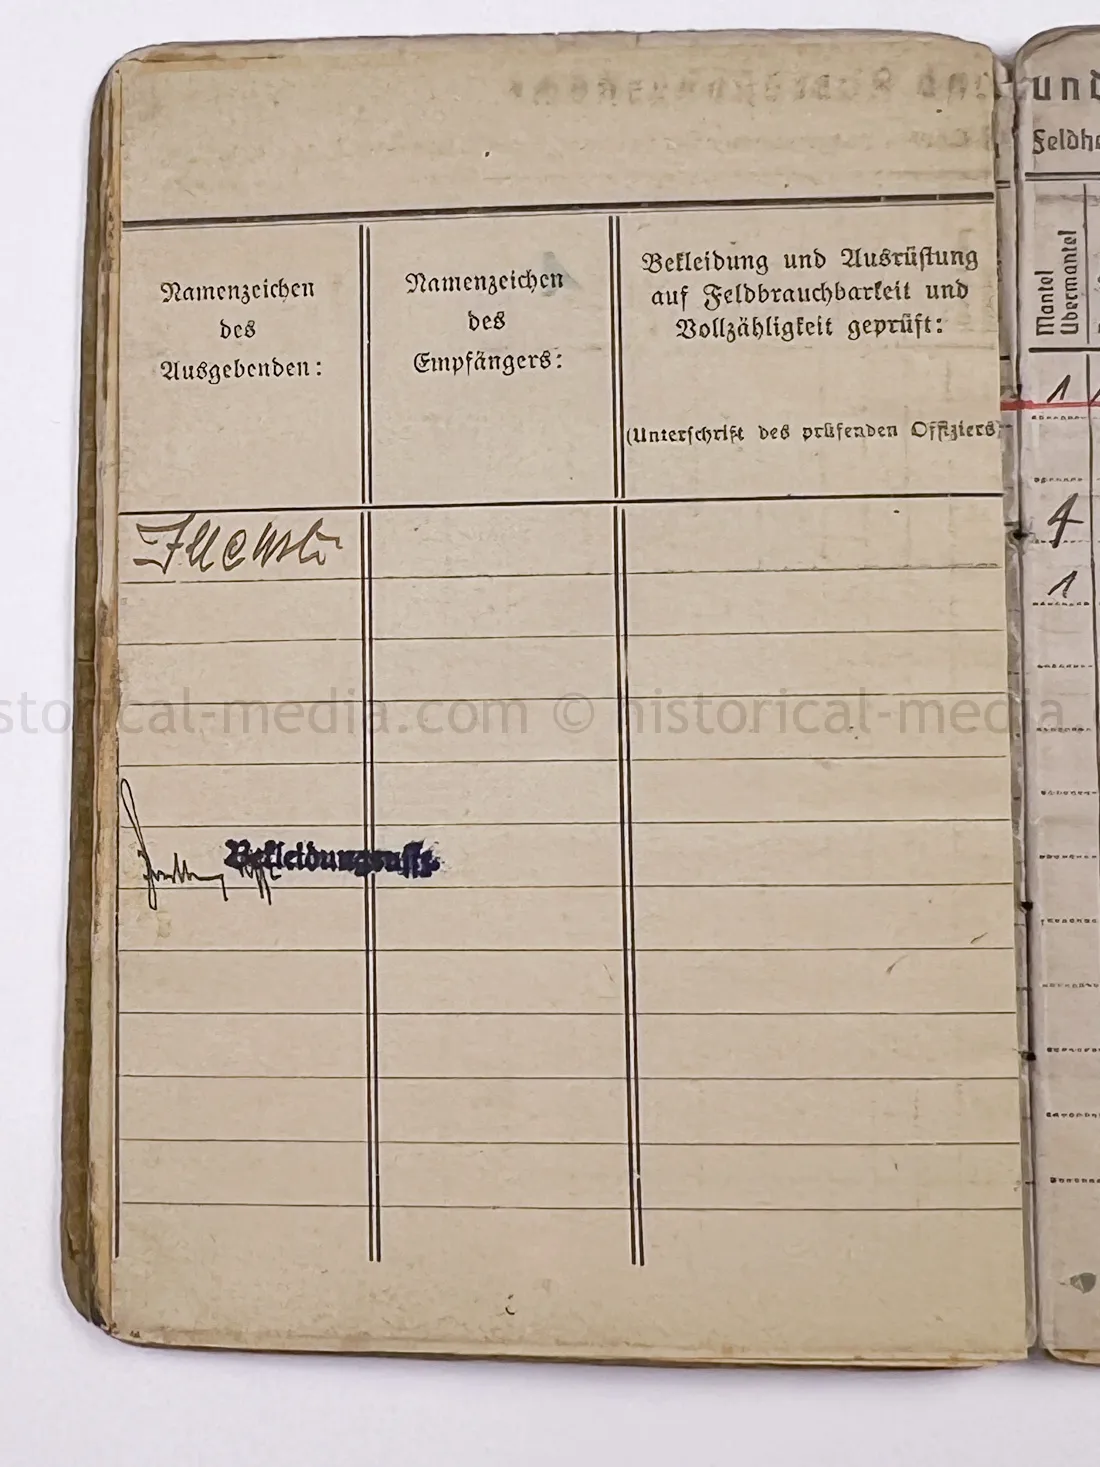 Namenzeichen
des
Ausgebenden:
Namenzeichen
des
Empfängers:
Bekleidung und Ausrüstung
auf Feldbrauchbarkeit und
Vollzähligkeit geprüft:
(Unterschrift des prüfenden Offiziers)
Uffz.
Bekleidungsuffz.
und
Feldhe
Mantel
Übermantel
1
1
4
1
storical-media.com © historical-media.